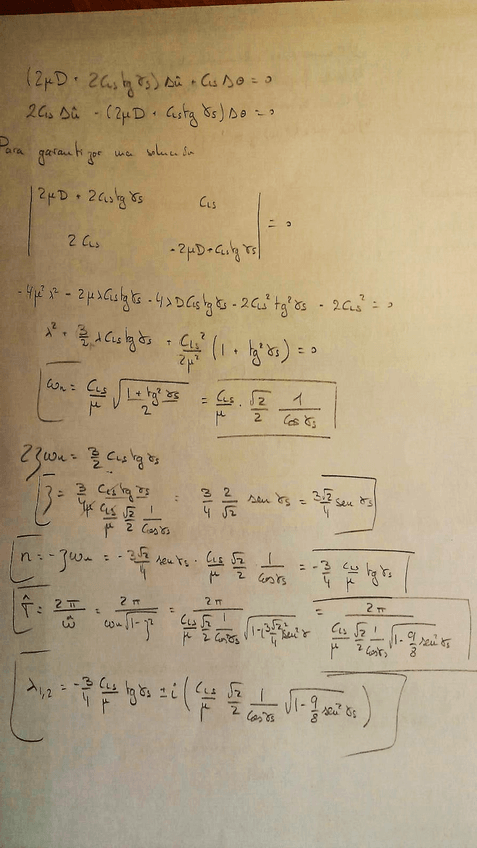 (2μD + 2C_Ls tg γs) Δû + C_Ls Δθ = 0
2C_Ls Δû - (2μD + C_Ls tg γs) Δθ = 0
Para garantizar una solución
| 2μD + 2C_Ls tg γs   C_Ls |
| 2C_Ls   -2μD + C_Ls tg γs | = 0
-4μ²λ² - 2μλ C_Ls tg γs - 4λD C_Ls tg γs - 2C_Ls² tg² γs - 2C_Ls² = 0
λ² + 3/2 λ C_Ls tg γs + C_Ls²/2μ² (1 + tg² γs) = 0
ωn = C_Ls/μ √((1 + tg² γs)/2) = C_Ls/μ · √2/2 1/cos γs
2ζωn = 3/2 C_Ls tg γs
ζ = (3/4μ C_Ls tg γs)/(C_Ls/μ √2/2 1/cos γs) = 3/4 2/√2 sen γs = 3√2/4 sen γs
n = -ζωn = -3√2/4 sen γs · C_Ls/μ √2/2 1/cos γs = -3/4 C_Ls/μ tg γs
T̂ = 2π/ω̂ = 2π/(ωn √(1-ζ²)) = 2π/(C_Ls/μ √2/2 1/cos γs √(1-(3√2/4)² sen² γ)) = 2π/(C_Ls/μ √2/2 1/cos γs √(1-9/8 sen² γs))
λ1,2 = -3/4 C_Ls/μ tg γs ± i (C_Ls/μ √2/2 1/cos γs √(1-9/8 sen² γs))